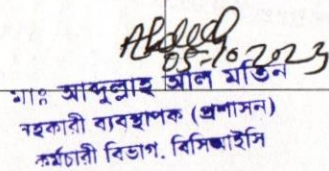 05-10-2023
মোঃ আব্দুল্লাহ আল মতিন
সহকারী ব্যবস্থাপক (প্রশাসন)
কর্মচারী বিভাগ, বিসিআইসি